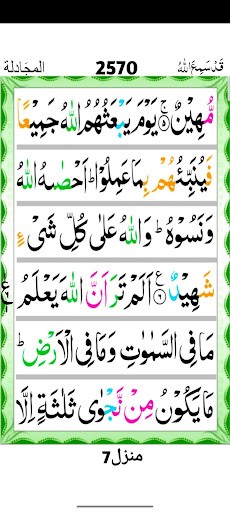 المجادلة 2570 قَدْ سَمِعَ اللهُ
مُّهِيْنٌ ۝٥ يَوْمَ يَبْعَثُهُمُ اللهُ جَمِيْعًا
فَيُنَبِّئُهُمْ بِمَا عَمِلُوْا ؕ اَحْصٰىهُ اللهُ
وَنَسُوْهُ ؕ وَاللهُ عَلٰى كُلِّ شَىْءٍ
شَهِيْدٌ ۝٦ ع اَلَمْ تَرَ اَنَّ اللهَ يَعْلَمُ
مَا فِى السَّمٰوٰتِ وَمَا فِى الْاَرْضِ ؕ
مَا يَكُوْنُ مِنْ نَّجْوٰى ثَلٰثَةٍ اِلَّا
منزل7